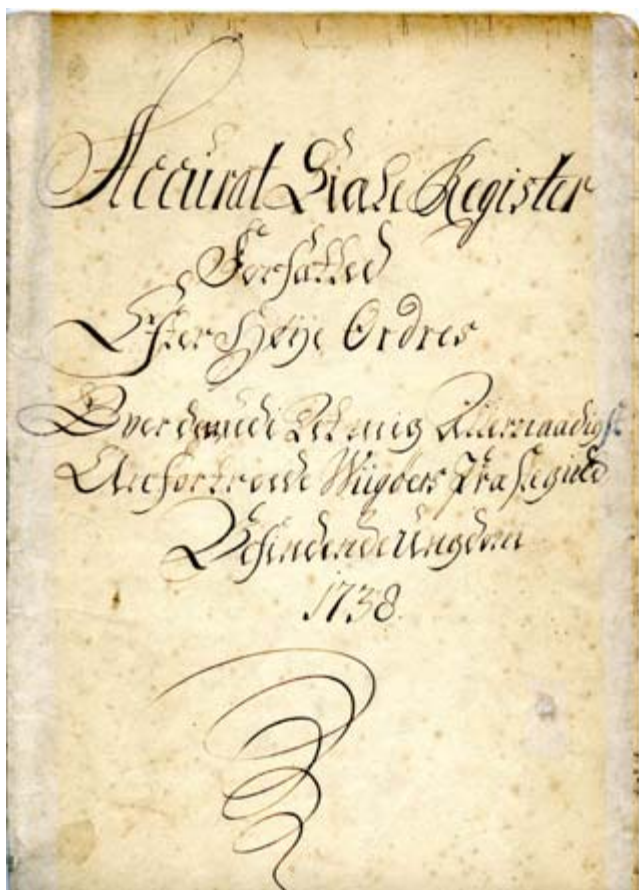 Accürat Siæle Register
Forfatted
Efter Høÿe Ordres
Over dend i Det mig Allernaadigst
Anfortroede Præstegield
Befindende Ungdom
1738.